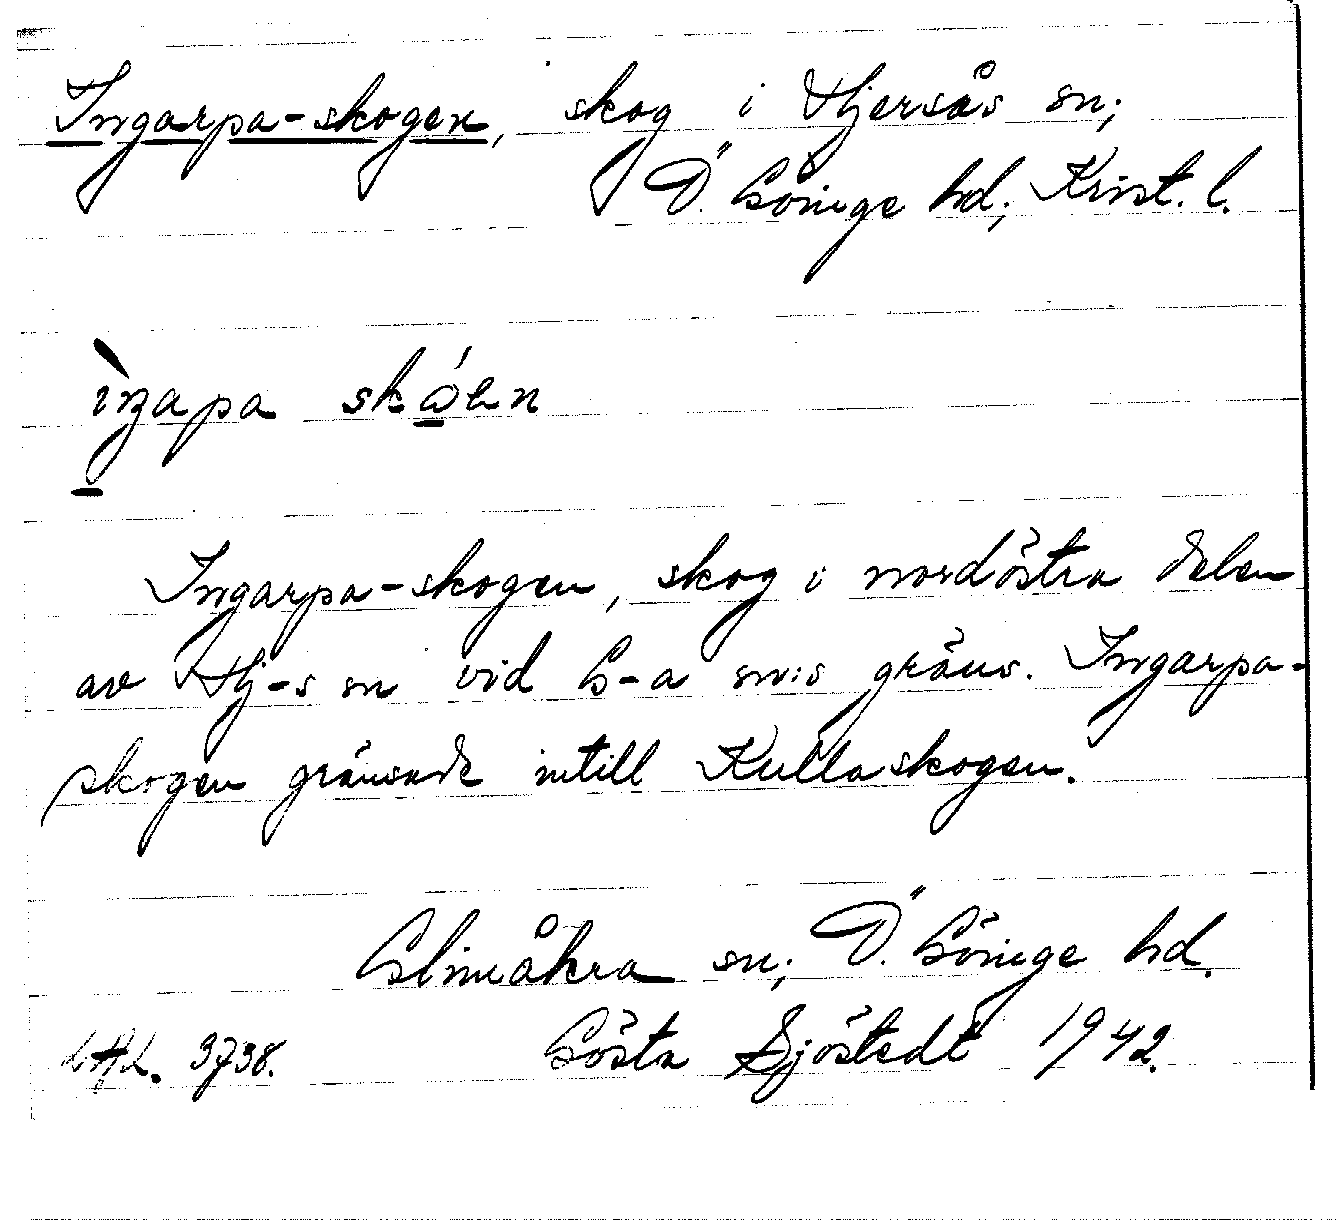 Ingarpa-skogen, skog i Hjersås sn;
Ö. Göinge hd; Krist. l.
ìŋapa skóen
Ingarpa-skogen, skog i nordöstra delen
av Hj-s sn vid G-a sn:s gräns. Ingarpa-
skogen gränsade intill Kullaskogen.
Glimåkra sn; Ö. Göinge hd.
LAL. 3738. Gösta Sjöstedt 1942.